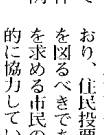 おり、住民投票
を図るべきであ
を求める市民の
的に協力してい